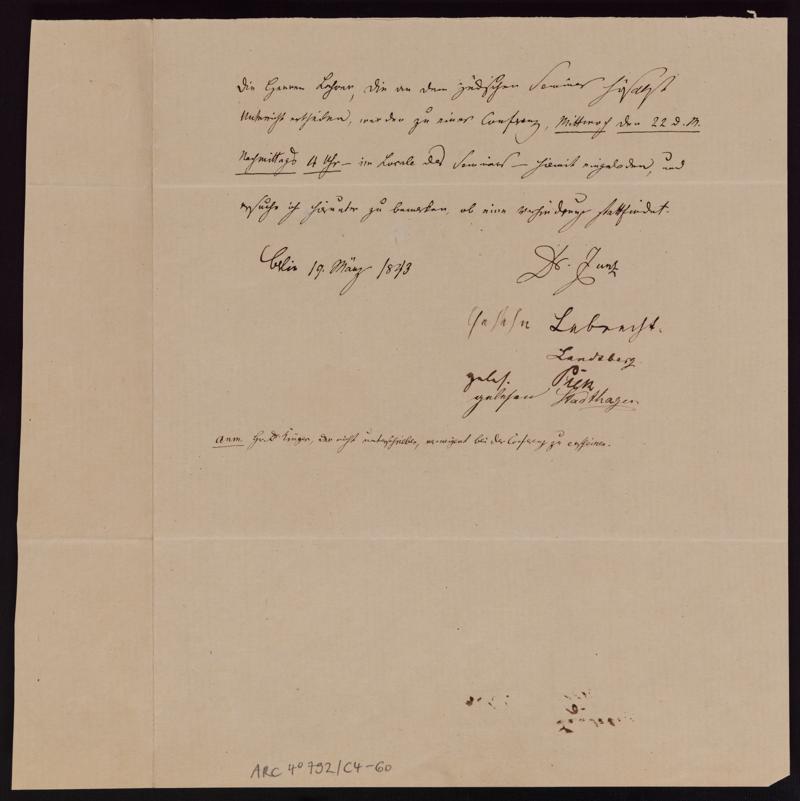 Die Herren Lehrer, die an dem jüdischen Seminar hieselbst
Unterricht ertheilen, werden zu einer Conferenz, Mittwoch den 22 d. M.
Nachmittags 4 Uhr – im Locale des Seminars – hiemit eingeladen, und
ersuche ich hierunter zu bemerken, ob eine Verhinderung stattfindet.
Berlin 19. März 1843
Dr. Zunz
gesehn Lebrecht.
Landsberg.
geles.
gelesen Stadthagen
Anm. Hr. D. der nicht unterschrieben, bei der Conferenz zu erscheinen.
ARC 4° 792/C4-60